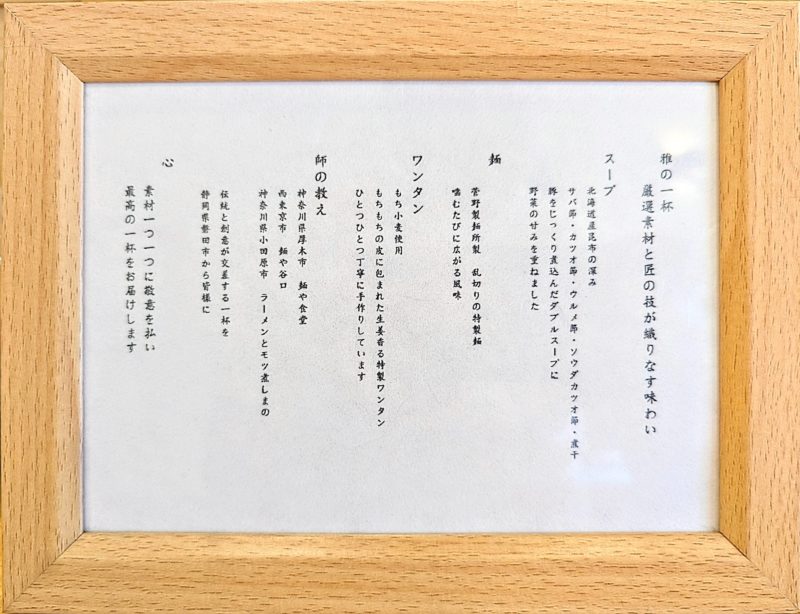 雅の一杯
厳選素材と匠の技が織りなす味わい
スープ
北海道産昆布の深み
サバ節・カツオ節・ウルメ節・ソウダカツオ節・煮干
豚をじっくり煮込んだダブルスープに
野菜の甘みを重ねました
麺
菅野製麺所製　乱切りの特製麺
噛むたびに広がる風味
ワンタン
もち小麦使用
もちもちの皮に包まれた生姜香る特製ワンタン
ひとつひとつ丁寧に手作りしています
師の教え
神奈川県厚木市　麺や食堂
西東京市　麺や谷口
神奈川県小田原市　ラーメンとモツ煮しまの
伝統と創意が交差する一杯を
静岡県磐田市から皆様に
心
素材一つ一つに敬意を払い
最高の一杯をお届けします